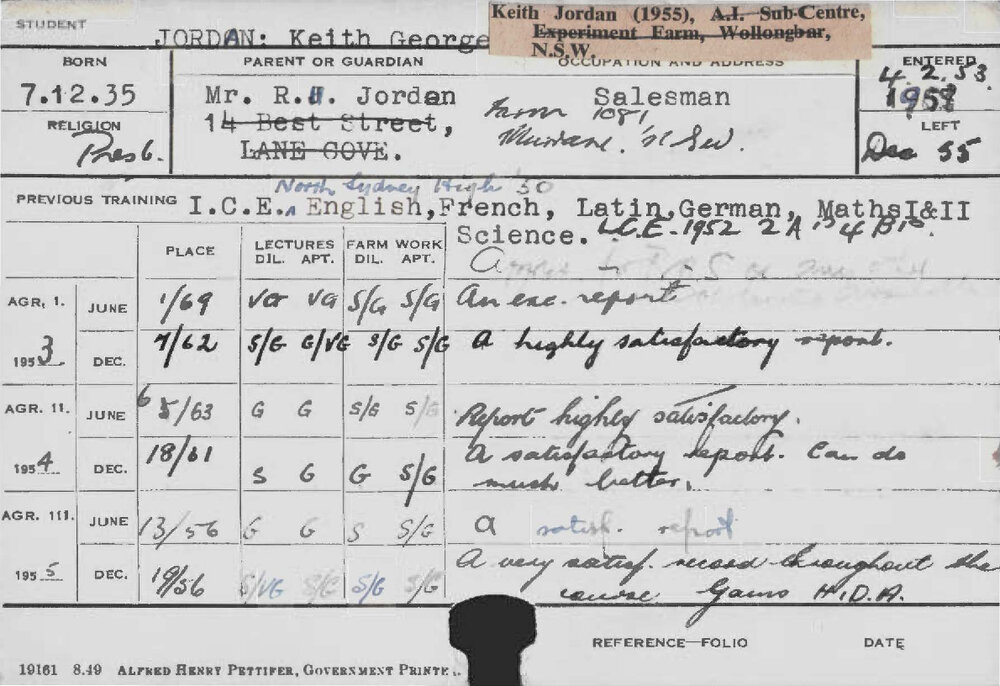 STUDENT
JORDAN: Keith George
Keith Jordan (1955), A.I. Sub-Centre,
Experiment Farm, Wollongbar,
N.S.W.
BORN
7.12.35
RELIGION
Presb.
PARENT OR GUARDIAN
Mr. R.H. Jordan
14 Best Street,
LANE COVE.
OCCUPATION AND ADDRESS
Salesman
Farm 1081
N.S.W.
ENTERED
4.2.53
195
LEFT
Dec 55
North Sydney High '50
PREVIOUS TRAINING I.C.E. English, French, Latin, German, Maths I&II
Science. L.C.E. 1952 2 A's 4 B's.
PLACE
LECTURES
DIL. APT.
FARM WORK
DIL. APT.
AGR. 1. 1953
JUNE 1/69 VG VG S/G S/G An exc. report
DEC. 7/62 S/G G/VG S/G S/G A highly satisfactory report.
AGR. 11. 1954
JUNE 6 5/63 G G S/G S/G Report highly satisfactory.
DEC. 18/61 S G G S/G A satisfactory report. Can do
much better.
AGR. 111. 1955
JUNE 13/56 G G S S/G A satisf. report
DEC. 19/56 S/VG S/G S/G S/G A very satisf. record throughout the
course. Gains H.D.A.
REFERENCE—FOLIO
DATE
19161 8.49 ALFRED HENRY PETTIFER, GOVERNMENT PRINTE